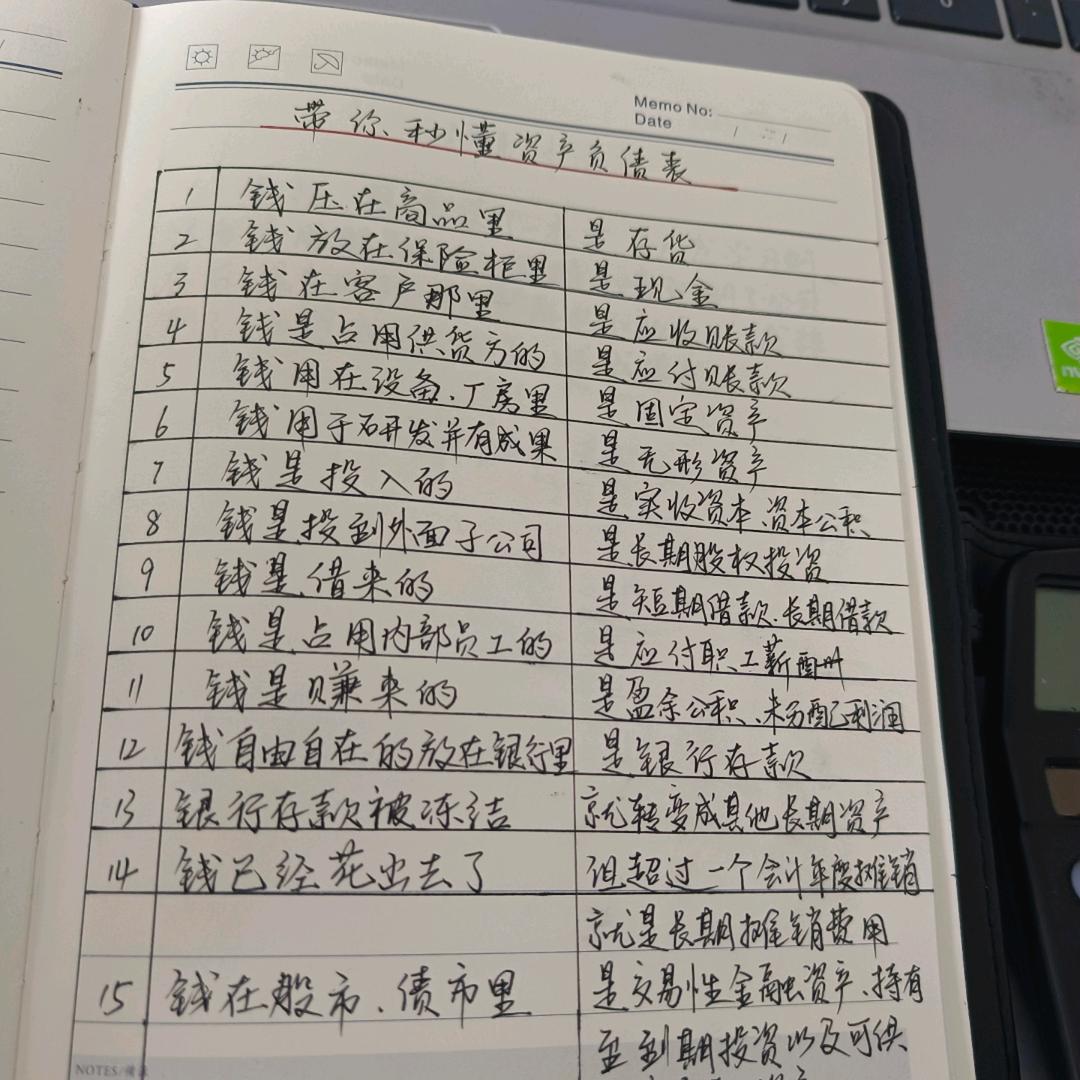 Memo No:
Date / /
带你秒懂资产负债表
1 钱压在商品里 是存货
2 钱放在保险柜里 是现金
3 钱在客户那里 是应收账款
4 钱是占用供货方的 是应付账款
5 钱用在设备、厂房里 是固定资产
6 钱用于研发并有成果 是无形资产
7 钱是投入的 是实收资本、资本公积
8 钱是投到外面子公司 是长期股权投资
9 钱是借来的 是短期借款、长期借款
10 钱是占用内部员工的 是应付职工薪酬
11 钱是赚来的 是盈余公积、未分配利润
12 钱自由自在的放在银行里 是银行存款
13 银行存款被冻结 就转变成其他长期资产
14 钱已经花出去了 但超过一个会计年度摊销
就是长期摊销费用
15 钱在股市、债市里 是交易性金融资产、持有
至到期投资以及可供
NOTES/